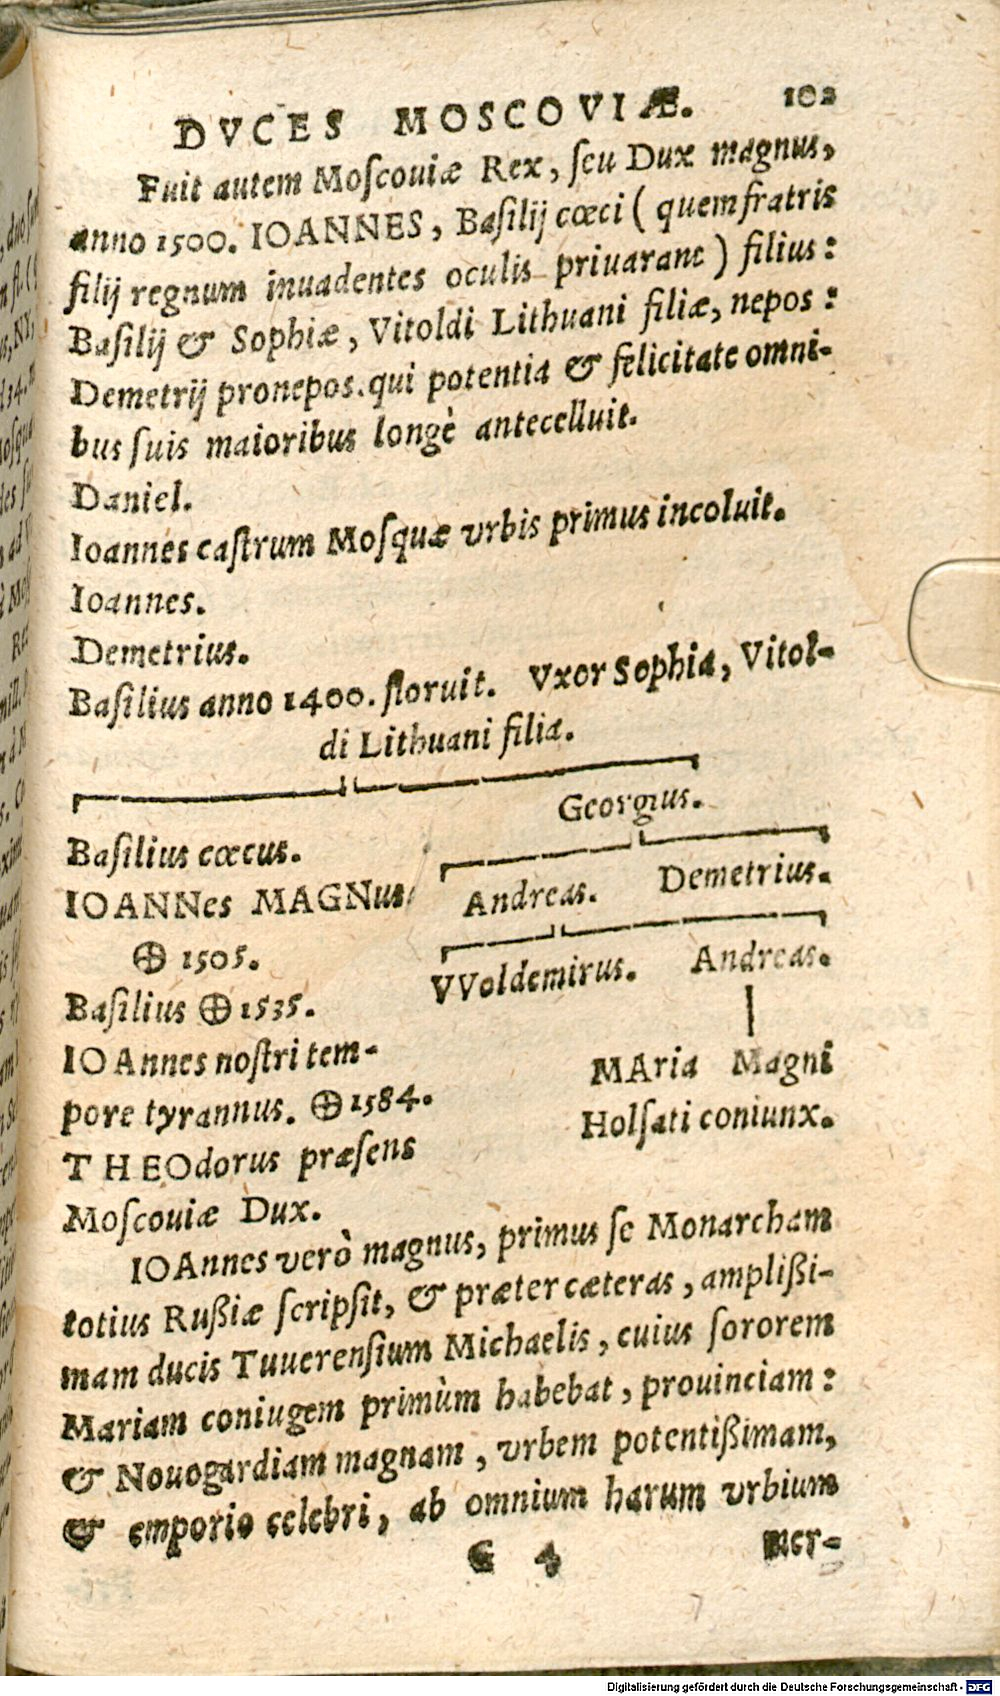 DVCES MOSCOVIÆ. 102
Fuit autem Moſcouiæ Rex, ſeu Dux magnus,
anno 1500. IOANNES, Baſilij cœci ( quem fratris
filij regnum inuadentes oculis priuarant ) filius:
Baſilij & Sophiæ, Vitoldi Lithuani filiæ, nepos:
Demetrij pronepos. qui potentia & felicitate omni-
bus ſuis maioribus longè antecelluit.
Daniel.
Ioannes caſtrum Moſquæ vrbis primus incoluit.
Ioannes.
Demetrius.
Baſilius anno 1400. floruit. Vxor Sophia, Vitol-
di Lithuani filia.
Georgius.
Baſilius cœcus.
Andreas. Demetrius.
IOANNes MAGNus
⊕ 1505.
VVoldemirus. Andreas.
Baſilius ⊕ 1535.
IOAnnes noſtri tem-
pore tyrannus. ⊕ 1584.
MAria Magni
Holſati coniunx.
THEOdorus præſens
Moſcouiæ Dux.
IOAnnes verò magnus, primus ſe Monarcham
totius Rußiæ ſcripſit, & præter cæteras, amplißi-
mam ducis Tuuerenſium Michaelis, cuius ſororem
Mariam coniugem primùm habebat, prouinciam:
& Nouogardiam magnam, vrbem potentißimam,
& emporio celebri, ab omnium harum vrbium
4 mer-
Digitalisierung gefördert durch die Deutsche Forschungsgemeinschaft - DFG